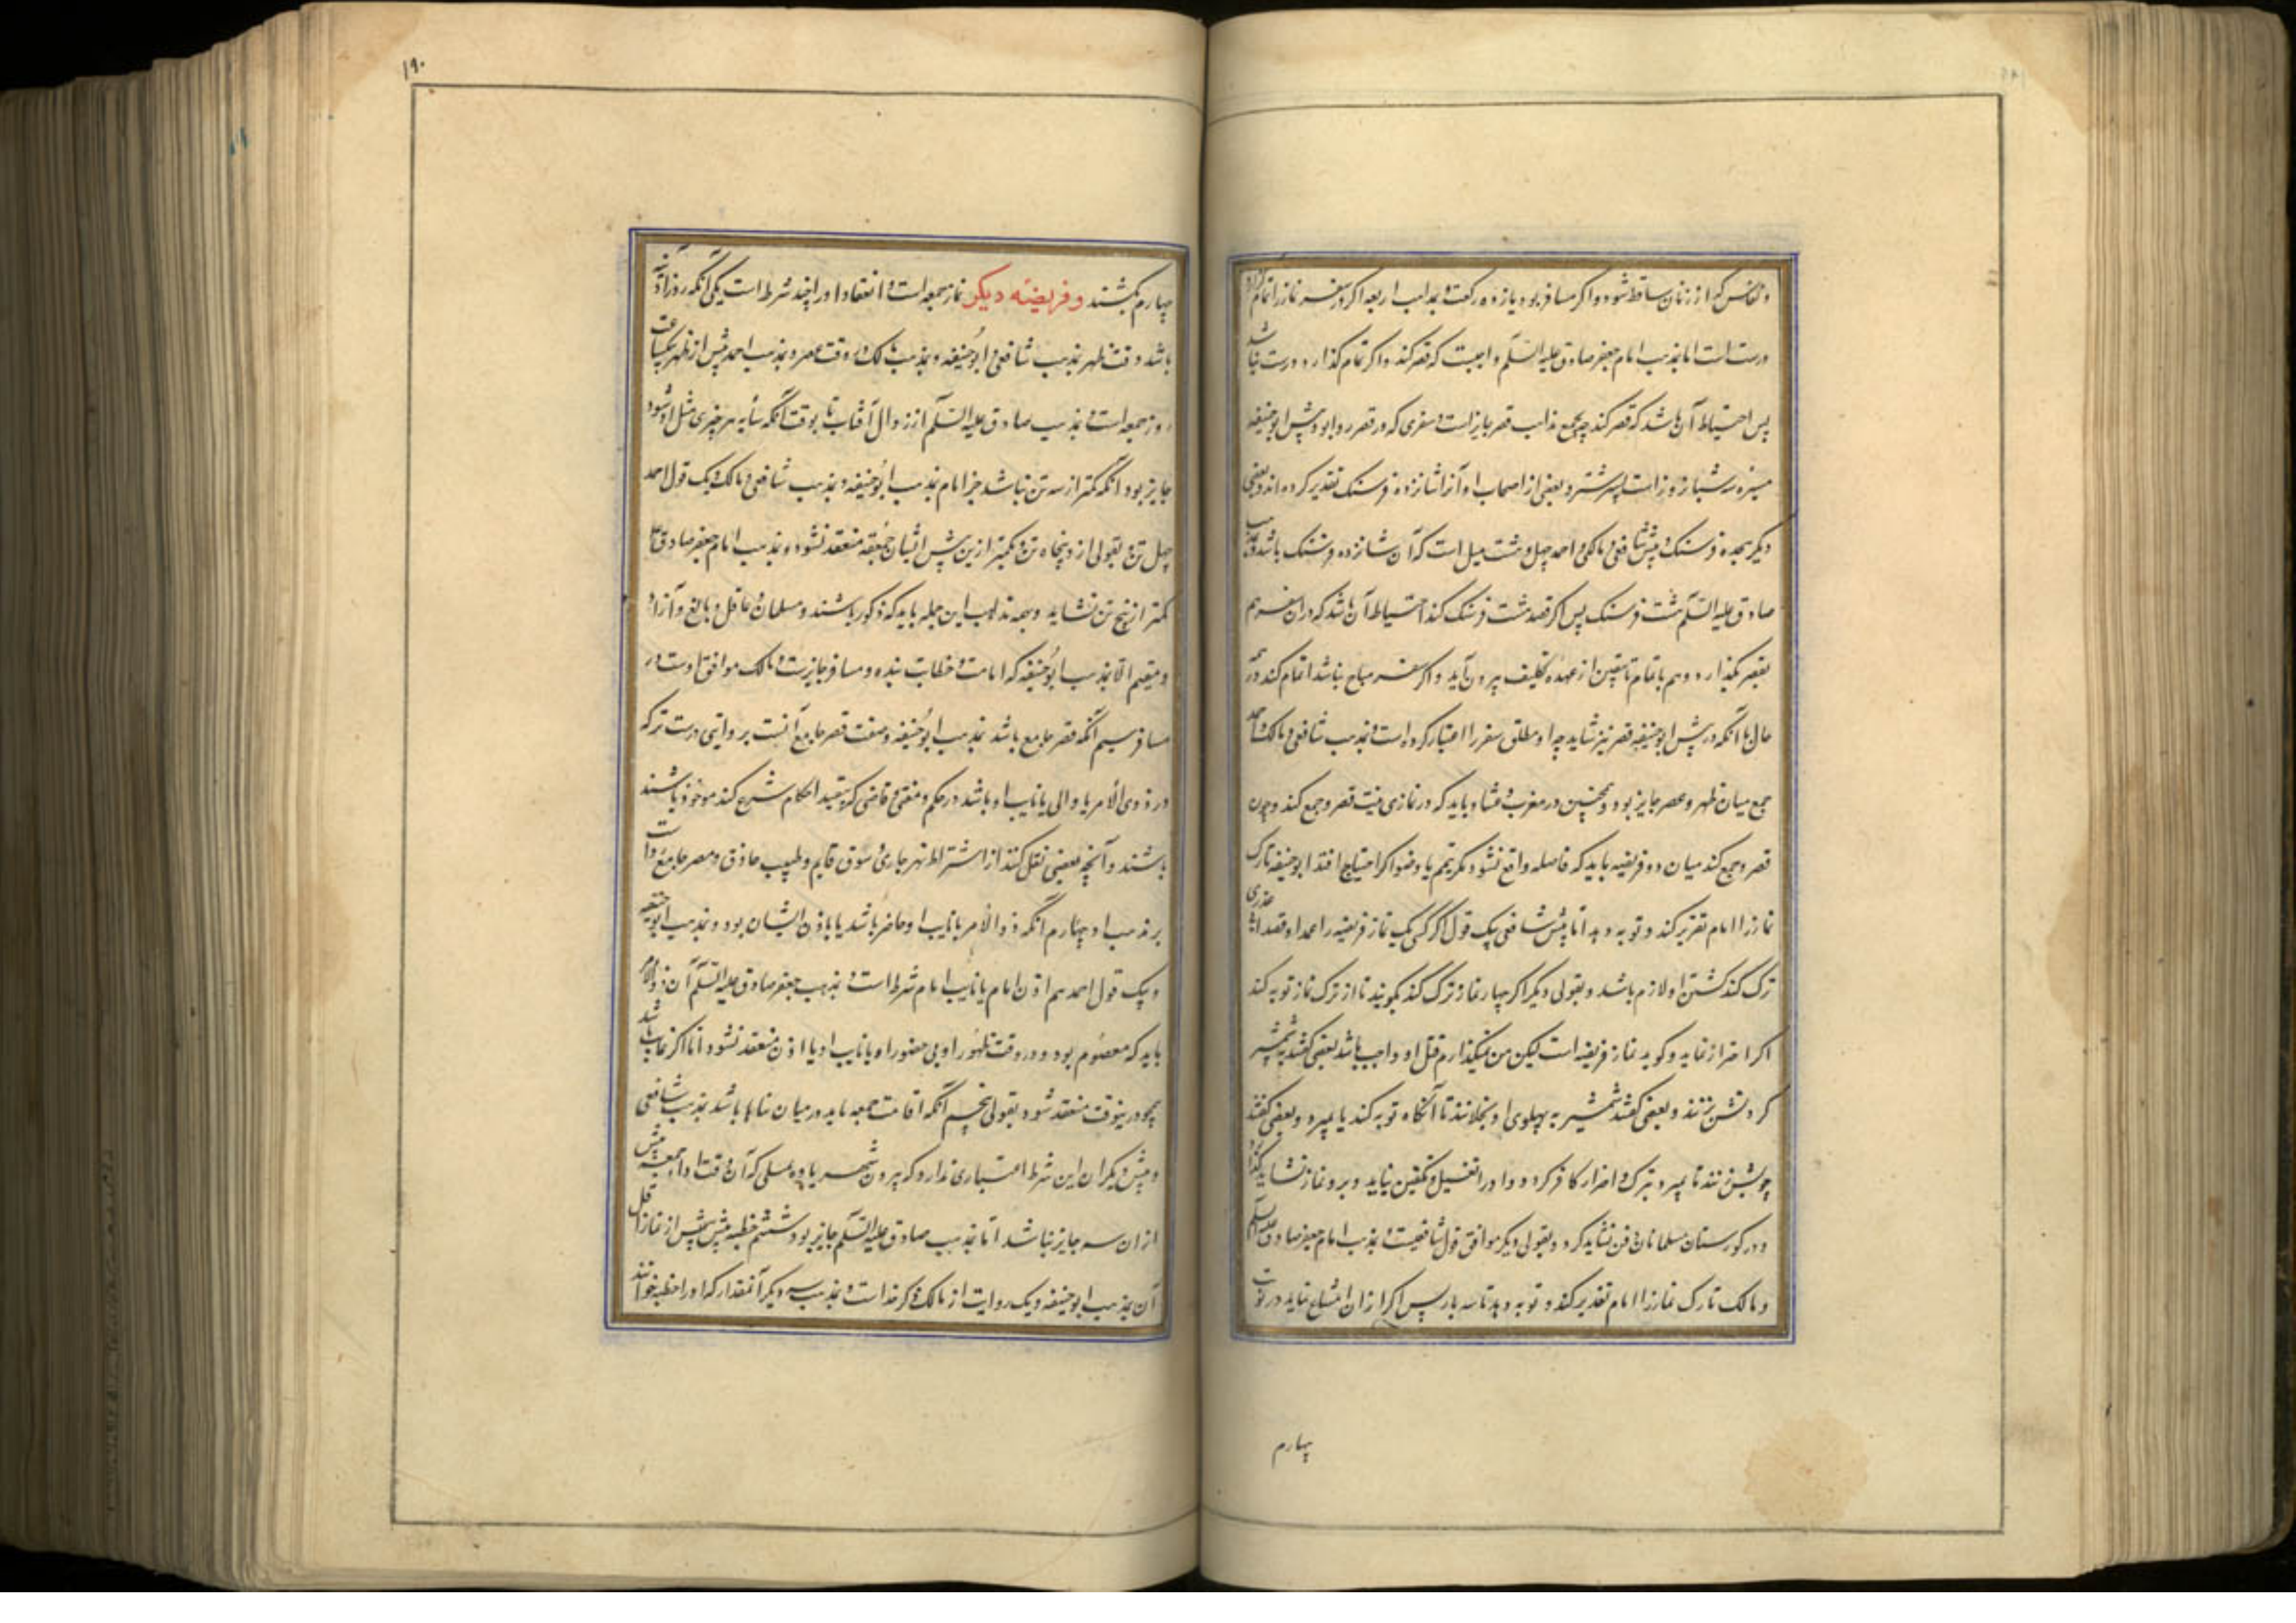 و نفاس که از زنان ساقط شود و اگر مسافر بود یازده رکعت و بمذاهب اربعه اگر در سفر نماز را تمام گذارد
درست است اما بمذهب امام جعفر صادق علیه السلم واجبست که قصر کند و اگر تمام گذارد درست نباشد
پس احتیاط آن باشد که قصر کند چه بجمیع مذاهب قصر جایز است و سفری که در قصر روا بود پیش ابو حنیفه
مسیره سه شبانروز است بسیر شتر و بعضی از اصحاب او آنرا شانزده فرسنک تقدیر کرده‌اند و بعضی
دیگر بهجده فرسنک و پیش شافعی و مالکی و احمد چهل و هشت میل است که آن شانزده فرسنک باشد و بمذهب
صادق علیه السلم هشت فرسنک پس اگر قصد هشت فرسنک کند احتیاط آن باشد که در آن سفر هم
بقصر بگذارد و هم باتمام تا بیقین از عهده تکلیف بیرون آید و اگر سفر مباح نباشد اتمام کند در همه
حال با آنکه در پیش ابو حنیفه قصر نیز شاید چه او مطلق سفر را اعتبار کرده است و بمذهب شافعی و مالک و احمد
جمع میان ظهر و عصر جایز بود و همچنین در مغرب و عشا و باید که در نمازی نیت قصر و جمع کند و چون
قصر و جمع کند میان دو فریضه باید که فاصله واقع نشود مگر تیمم یا وضو اگر احتیاج افتد ابو حنیفه تارک
نماز را امام تعزیر کند و توبه دهد اما پیش شافعی بیک قول اگر کسی یک نماز فریضه را عمدا و قصدا بی عذری
ترک کند کشتن او لازم باشد و بقولی دیگر اگر چهار نماز ترک کند بگویند تا از ترک نماز توبه کند
اگر احتراز نماید و گوید نماز فریضه است لیکن من نمیگذارم قتل او واجب باشد بعضی گفتند به شمشیر
گردنش زنند و بعضی گفتند شمشیر به پهلوی او بخلانند تا آنگاه توبه کند یا بمیرد و بعضی گفتند
چوبش زنند تا بمیرد و بترک و اصرار کافر گردد و او را تغسیل و تکفین نباید و برو نماز نشاید گذارد
و در گورستان مسلمانان دفن نشاید کرد و بقولی دیگر موافق قول شافعیست و بمذهب امام جعفر صادق علیه السلم
و مالک تارک نماز را امام تعزیر کند و توبه دهد تا سه بار پس اگر از آن امتناع نماید در نوبت
چهارم
۱۹۰
چهارم بکشند و فریضه دیکر نماز جمعه است و انعقاد او را چند شرط است یکی آنکه روز آدینه
باشد وقت ظهر بمذهب شافعی و ابو حنیفه و بمذهب مالک وقت عصر و بمذهب احمد پیش از ظهر بیکساعت
روز جمعه است و بمذهب صادق علیه السلم از زوال آفتاب تا بوقت آنکه سایه هر چیزی مثل او شود
جایز بود آنکه کمتر از سه تن نباشد جز امام بمذهب ابو حنیفه و بمذهب شافعی و مالک و یک قول احمد
چهل تن و بقولی از و پنجاه تن و بکمتر ازین پیش ایشان جمعه منعقد نشود و بمذهب امام جعفر صادق ع
کمتر از پنج تن نشاید و بهمه مذاهب این جمله باید که ذکور باشند و مسلمان و عاقل و بالغ و آزاد
و مقیم الا بمذهب ابو حنیفه که امامت و خطابت بنده و مسافر جایزست و مالک موافق اوست در
مسافر سیم آنکه قصر جامع باشد بمذهب ابو حنیفه و صفت قصر جامع آنست بروایتی درست‌تر که
درو ذوی الامر یا والی یا نایب او باشد در حکم و مفتی و قاضی که بتنفیذ احکام شرع کند موجود باشند
باشند و آنچه بعضی نقل کنند از اشتراط نهر جاری و سوق قایم و طبیب حاذق و مصر جامع
بر مذهب او چهارم آنکه ذو الامر یا نایب او حاضر باشد یا باذن ایشان بود و بمذهب ابو حنیفه
و بیک قول احمد هم اذن امام یا نایب امام شرط است و بمذهب جعفر صادق علیه السلم آن ذوالامر
باید که معصوم بود و در وقت ظهور او بی حضور او یا نایب او یا اذن منعقد نشود اما اگر غایب باشد
همچو درینوقت منعقد شود بقولی پنجم آنکه اقامت جمعه باید در میان بناها باشد بمذهب شافعی
و پیش دیگران این شرط اعتباری ندارد که بیرون شهر یا ده مصلی که آن وقت اداء جمعه بیش
از آن سه جایز نباشد اما بمذهب صادق علیه السلم جایز بود ششم خطبه پیش از نماز اقل
آن بمذهب ابو حنیفه و یک روایت از مالک ذکر خداست و بمذهب سه دیگر آنمقدار که او را خطبه خوانند